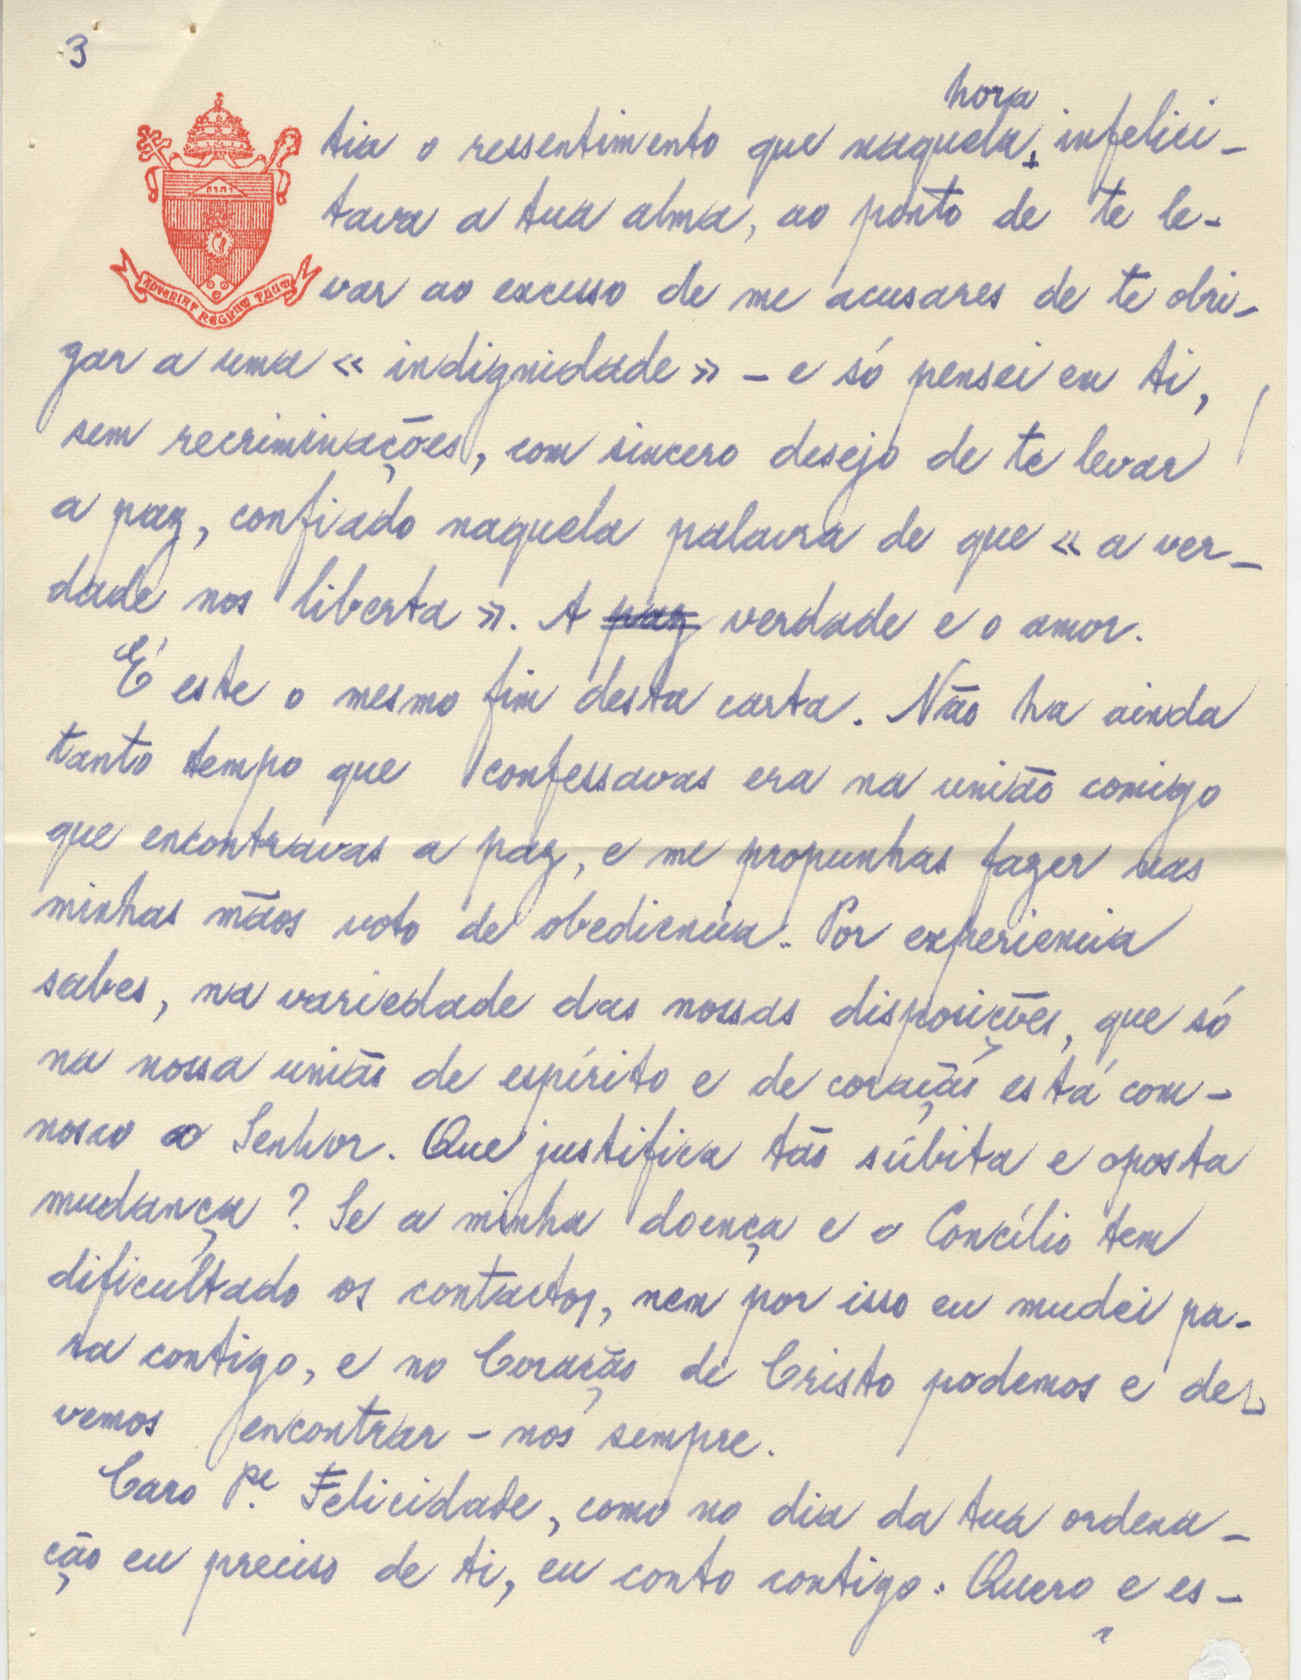 3
hora
tia o ressentimento que naquela infelici-
tava a tua alma, ao ponto de te le-
ADVENIAT REGNUM TUUM
var ao excesso de me acusares de te obri-
gar a uma « indignidade » - e só pensei em ti,
sem recriminações, com sincero desejo de te levar
a paz, confiado naquela palavra de que « a ver-
dade nos liberta ». A paz verdade e o amor.
É este o mesmo fim desta carta. Não ha ainda
tanto tempo que confessavas era na união comigo
que encontravas a paz, e me propunhas fazer nas
minhas mãos voto de obediencia. Por experiencia
sabes, na variedade das nossas disposições, que só
na nossa união de espírito e de coração está com-
nosco o Senhor. Que justifica tão súbita e oposta
mudança? Se a minha doença e o Concílio tem
dificultado os contactos, nem por isso eu mudei pa-
ra contigo, e no Coração de Cristo podemos e de-
vemos encontrar-nos sempre.
Caro Pe. Felicidade, como no dia da tua ordena-
ção eu preciso de ti, eu conto contigo. Quero e es-